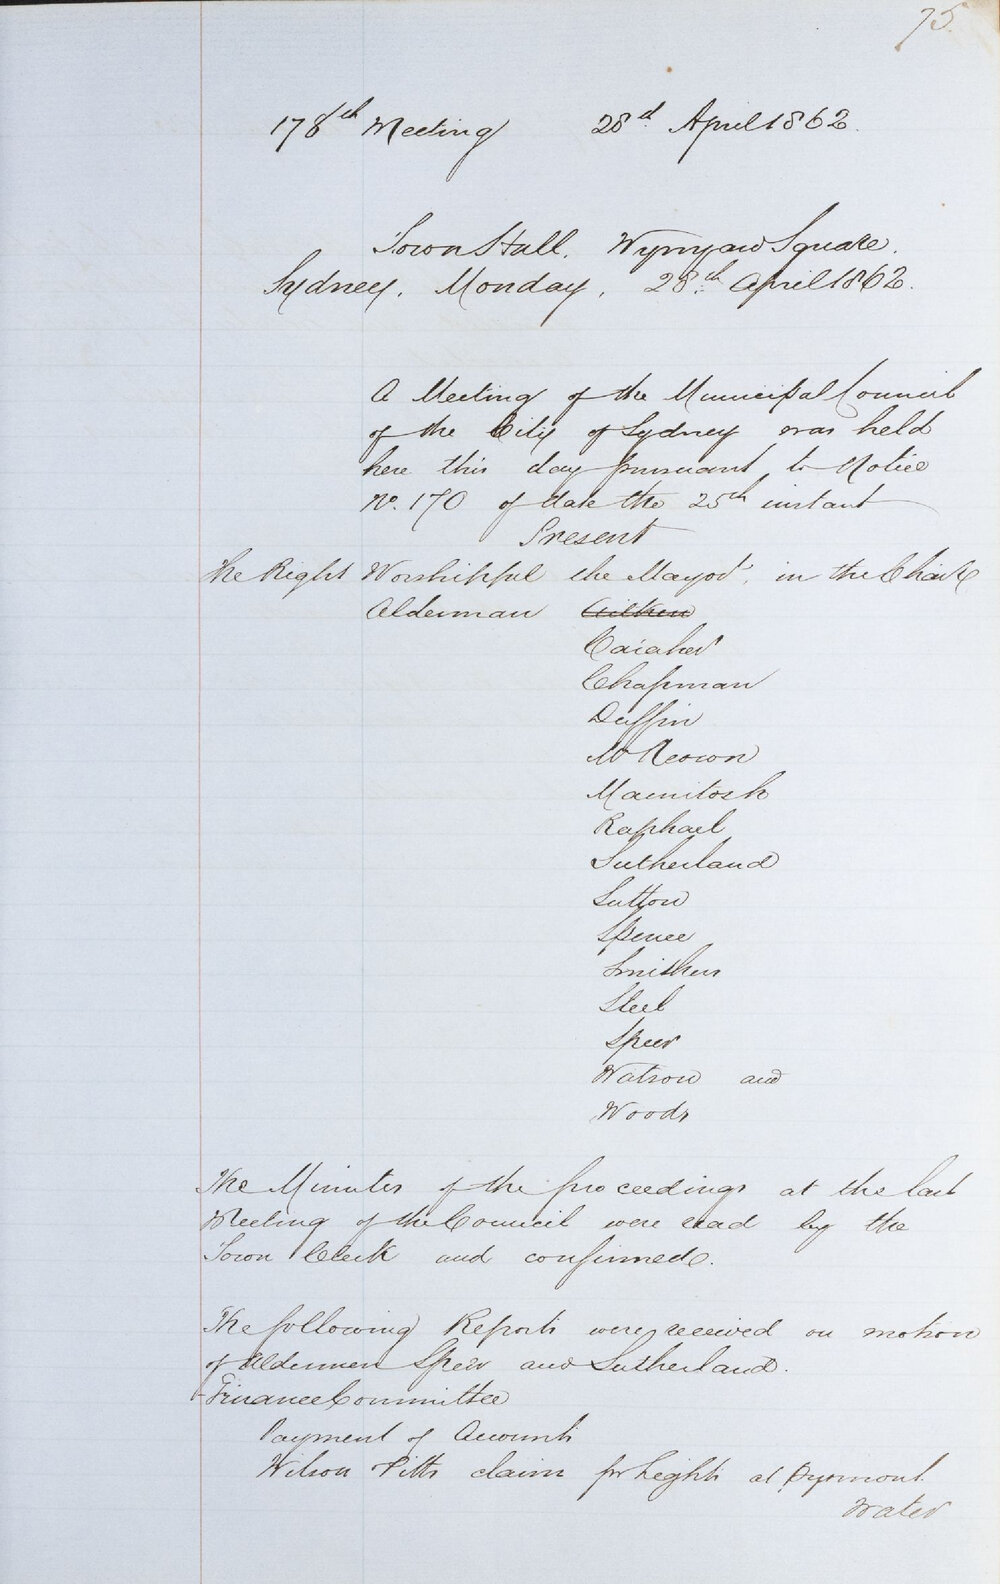 75
178th Meeting 28th April 1862.
Town Hall. Wynyard Square.
Sydney. Monday, 28th April 1862.
A Meeting of the Municipal Council
of the City of Sydney was held
here this day pursuant to Notice
No. 170 of date the 25th instant
Present
The Right Worshipful the Mayor, in the Chair
Alderman
Caraher
Chapman
Duffin
McKeown
Macintosh
Raphael
Sutherland
Sutton
Spence
Smithers
Steel
Speer
Watson and
Woods
The Minutes of the proceedings at the last
Meeting of the Council were read by the
Town Clerk and confirmed.
The following Reports were received on motion
of Aldermen Speer and Sutherland.
Finance Committee
Payment of Accounts
Wilson Pitts claim for lights at Pyrmont
Water